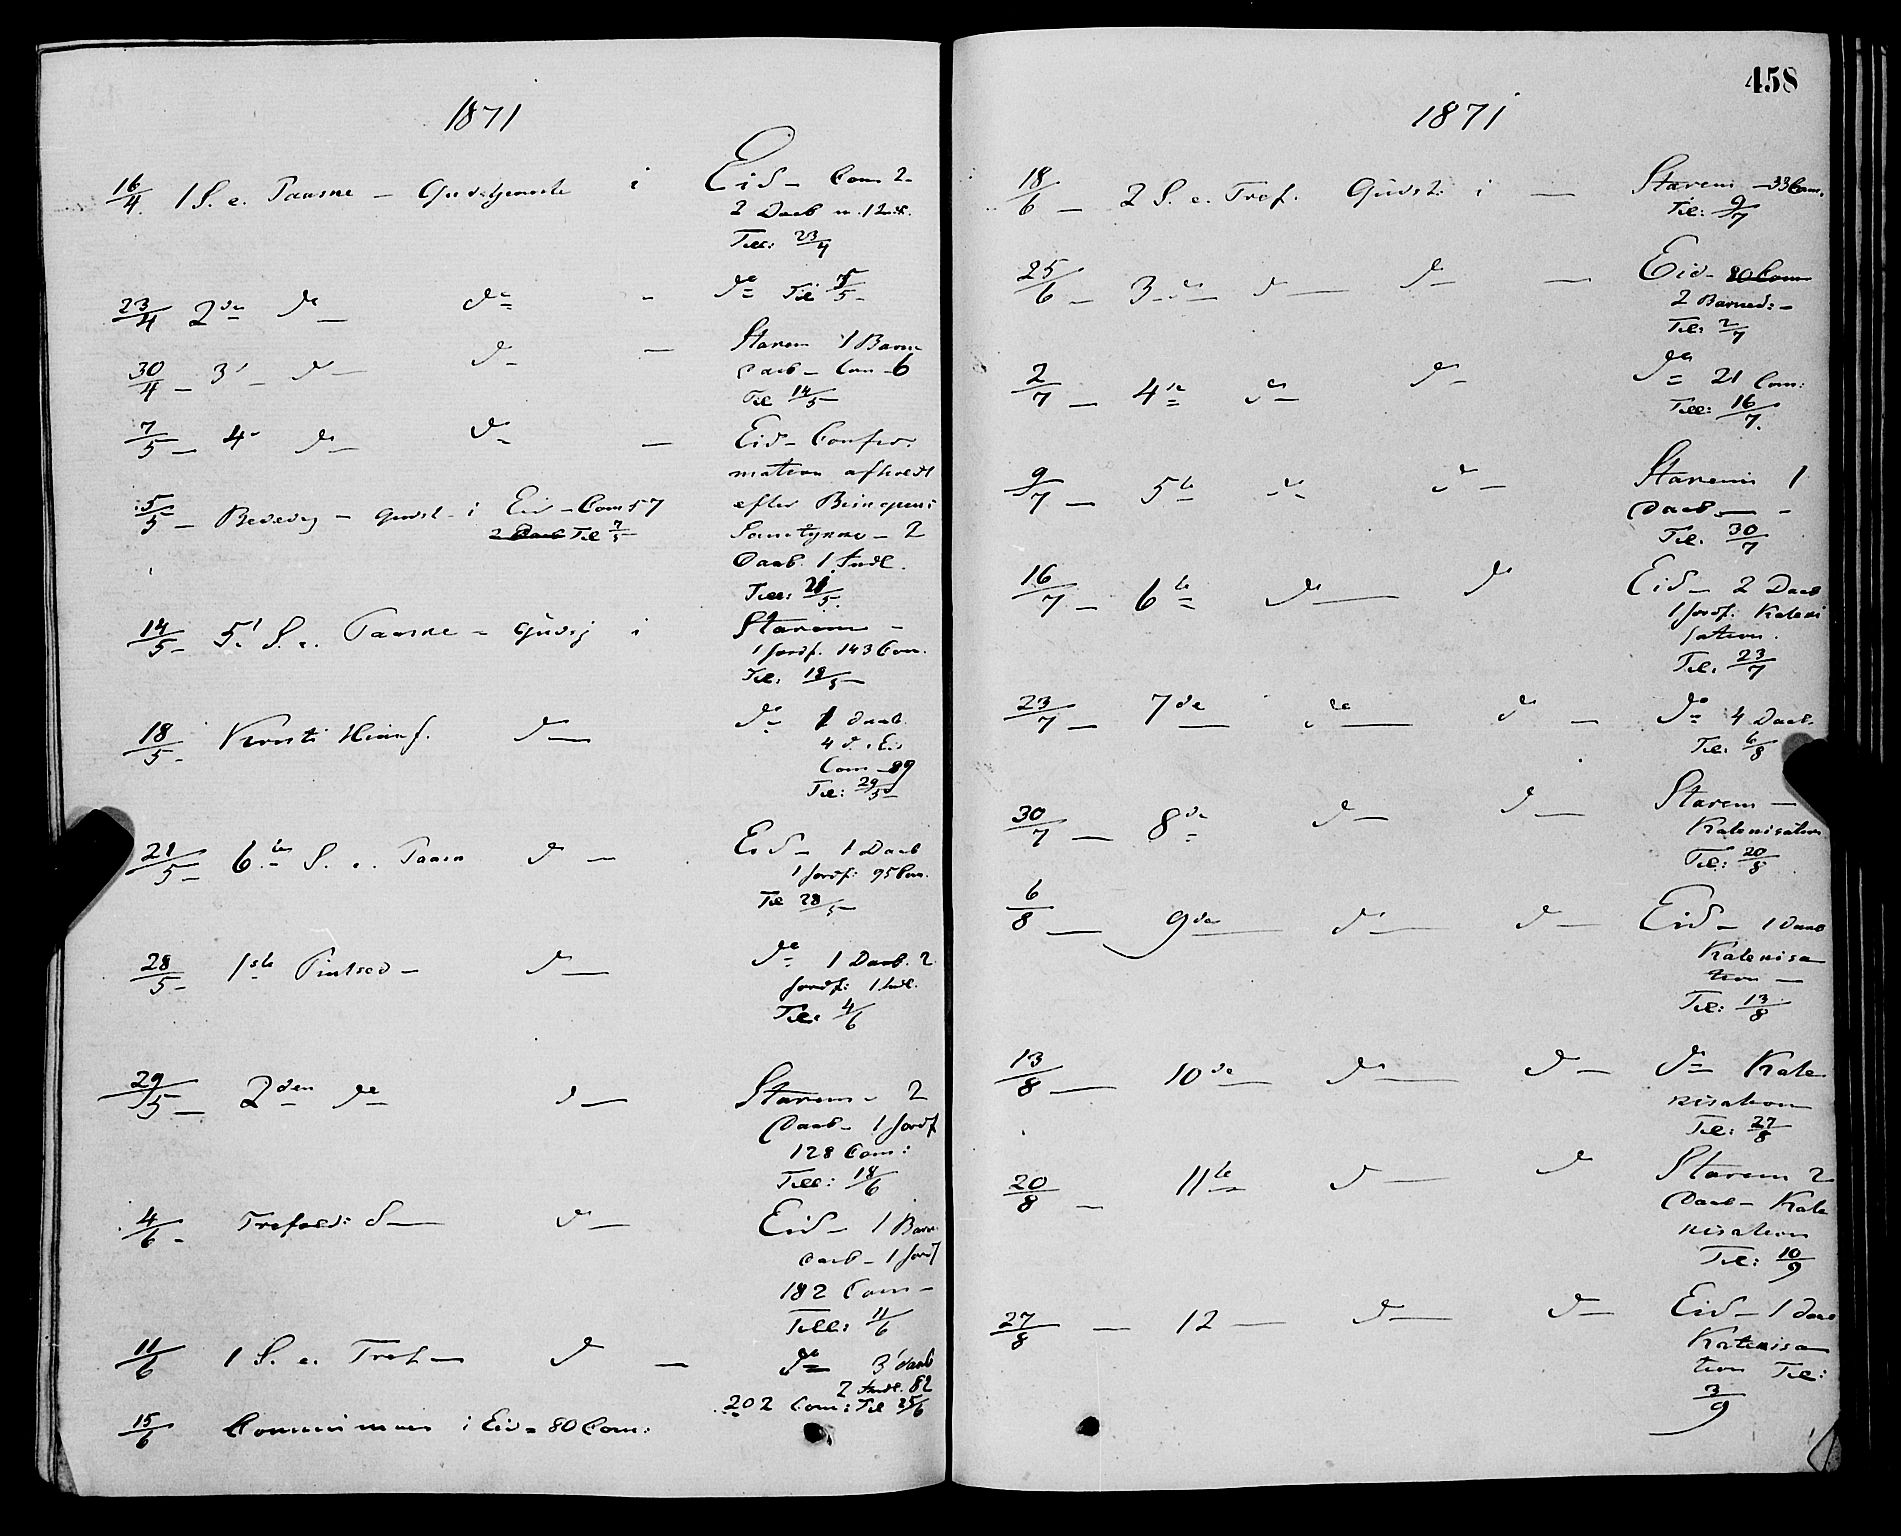 1871
16/4 1 S. e. Paaske – Gudstjeneste i Eid – Com 2 –
2 Daab m. 1 Indl.
Till: 23/4
23/4 2de do do – do Til 5/5 –
30/4 – 3' – do – do – Starem 1 Barne
daab – Com – 6
Til 14/5 –
7/5 – 4' do – do – Eid – Confir-
mation afholdt
5/5 – Bededag – Gudst – i Eid – Com 57 efter
2 Daab Til 7/5 Samtykke – 2
Daab. 1 Indl.
Till: 21/5.
14/5 – 5' S. e. Paaske – Gudstj i Starem –
1 Jordf. 143 Com.
Til: 18/5 –
18/5 – Kristi Himf. do – do 1 daab.
4 d. i Eid
Com – 89
Til: 29/5 –
21/5 – 6te S. e. Paask do – Eid – 1 Daab
1 Jordf: 95 Com.
Til 28/5 –
28/5 – 1ste Pintsed – do – do 1 Daab. 2
Jordf: 1 Indl.
Til: 4/6
29/5 – 2den do do – Starem – 2
Daab – 1 Jordf
128 Com:
Till: 18/6
4/6 – Trefold: S – do – Eid – 1 Barne
daab – 1 Jordf
182 Com –
Till: 11/6
11/6 1 S. e. Tref – do – do 3' daab
2 Indl. 82
202 Com: Til 25/6
15/6 Communion i Eid – 80 Com:
458
1871
18/6 – 2 S. e. Tref. Gudst: i – Starem – 33 Com.
Til: 9/7
25/6 – 3 – de do – do – – Eid – 80 Com
2 Barned: –
Til: 2/7
2/7 – 4de do – do – do 21 Com:
Till: 16/7.
9/7 – 5te do – do – Starem 1
Daab – –
Til. 30/7
16/7 – 6te do – do Eid – 2 Daab
1 Jordf: Kateki
sation.
Til. 23/7
23/7 – 7de do – do – do 4 Daab.
Til: 6/8
30/7 – 8de do – do – Starem –
Katekisation
Til: 20/8
6/8 – 9de do – do – Eid – 1 daab
Katekisa
tion –
Til: 13/8
13/8 – 10de do – do – do Kate
kisation
Til: 27/8
20/8 – 11te do – do Starem 2
Daab – Kate
kisation
Til: 10/9
27/8 – 12 – do – do – Eid – 1 daab
Katekisa
tion Til:
3/9